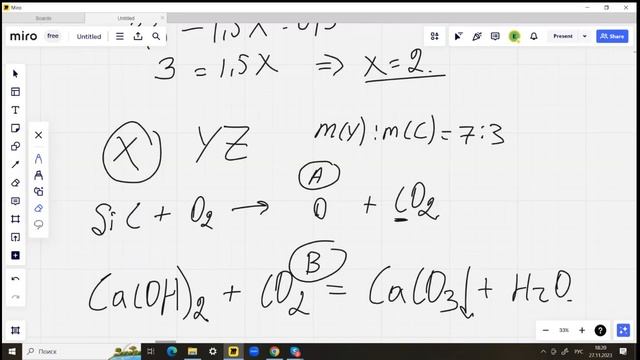 Boards
Untitled
miro
free
Untitled
E
Present
Share
3 = 1,5X ⇒ X = 2.
X YZ m(Y) : m(C) = 7 : 3
A
SiC + O₂ → O + CO₂
B
Ca(OH)₂ + CO₂ = CaCO₃↓ + H₂O.
33%
Поиск
РУС
18:20
27.11.2023